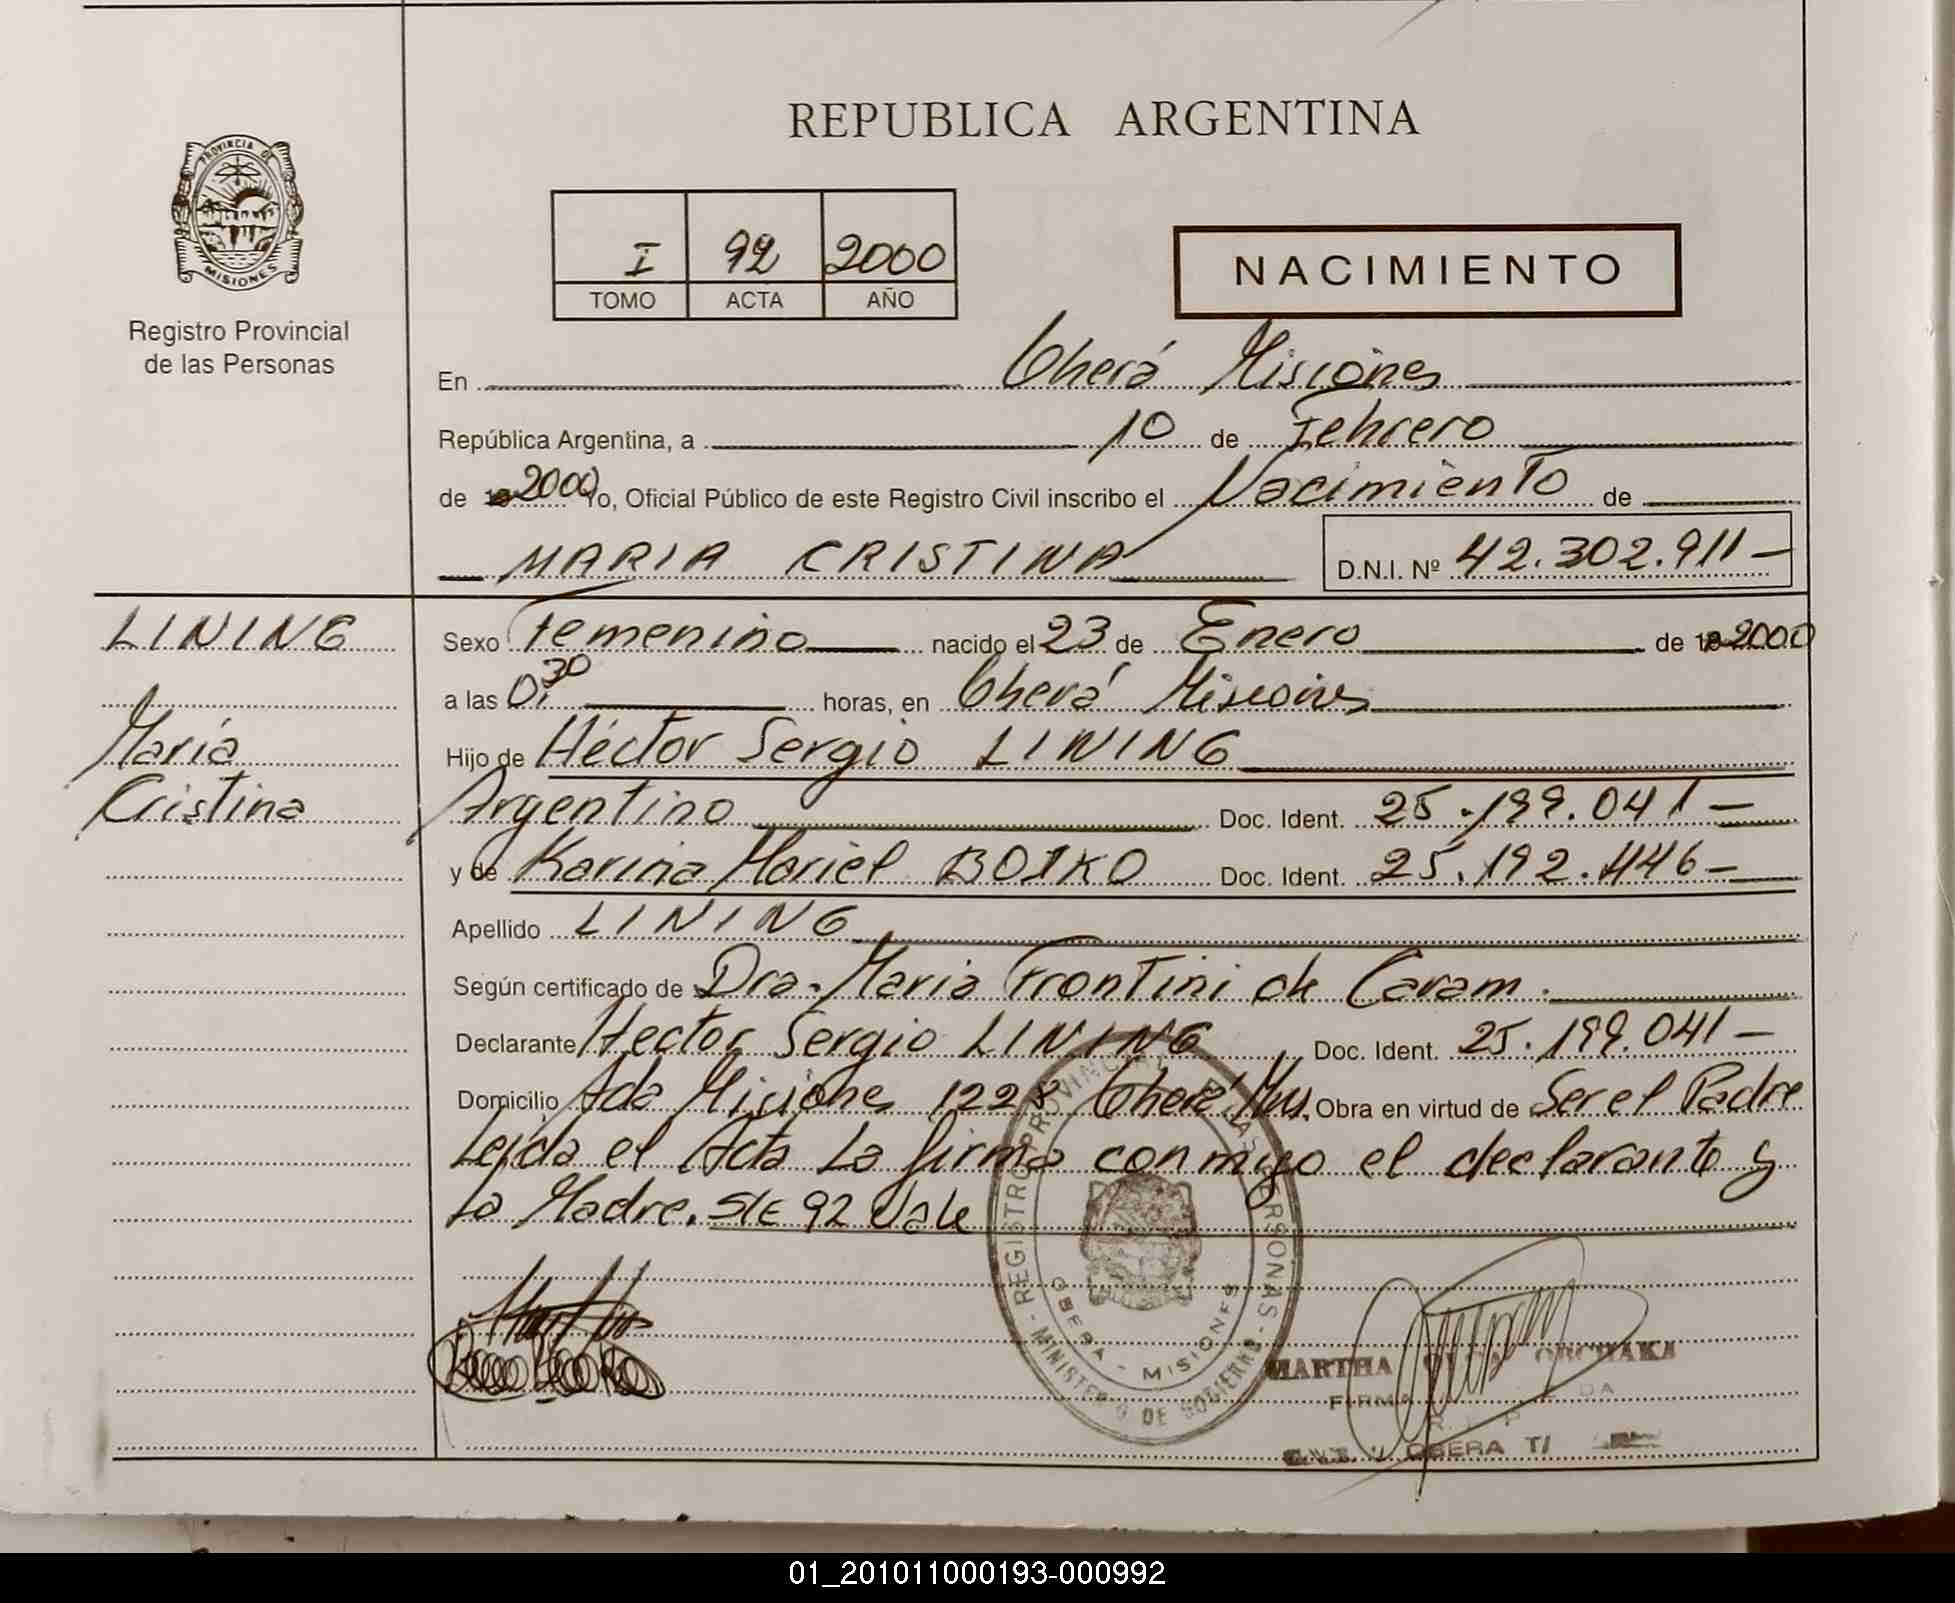 REPUBLICA ARGENTINA
PROVINCIA DE
MISIONES
Registro Provincial
de las Personas
I 92 2000
TOMO ACTA AÑO
NACIMIENTO
En Oberá Misiones
República Argentina, a 10 de Febrero
de 2000 Yo, Oficial Público de este Registro Civil inscribo el Nacimiento de
MARIA CRISTINA D.N.I. Nº 42.302.911-
LINING
María
Cristina
Sexo Femenino nacido el 23 de Enero de 2000
a las 0,30 horas, en Oberá Misiones
Hijo de Héctor Sergio LINING
Argentino Doc. Ident. 25.199.041-
y de Karina Mariel BOIKO Doc. Ident. 25.192.446-
Apellido LINING
Según certificado de Dra. Maria Frontini de Caram.
Declarante Hector Sergio LINING Doc. Ident. 25.199.041-
Domicilio Avda Misiones 1228 Oberá Mnes. Obra en virtud de Ser el Padre
Leida el Acta La firma conmigo el declarante y
La Madre. S/E 92 Vale
REGISTRO PROVINCIAL DE LAS PERSONAS - MINISTERIO DE GOBIERNO -
OBERA - MISIONES
MARTHA OLGA
FIRMA
OBERA
01_201011000193-000992